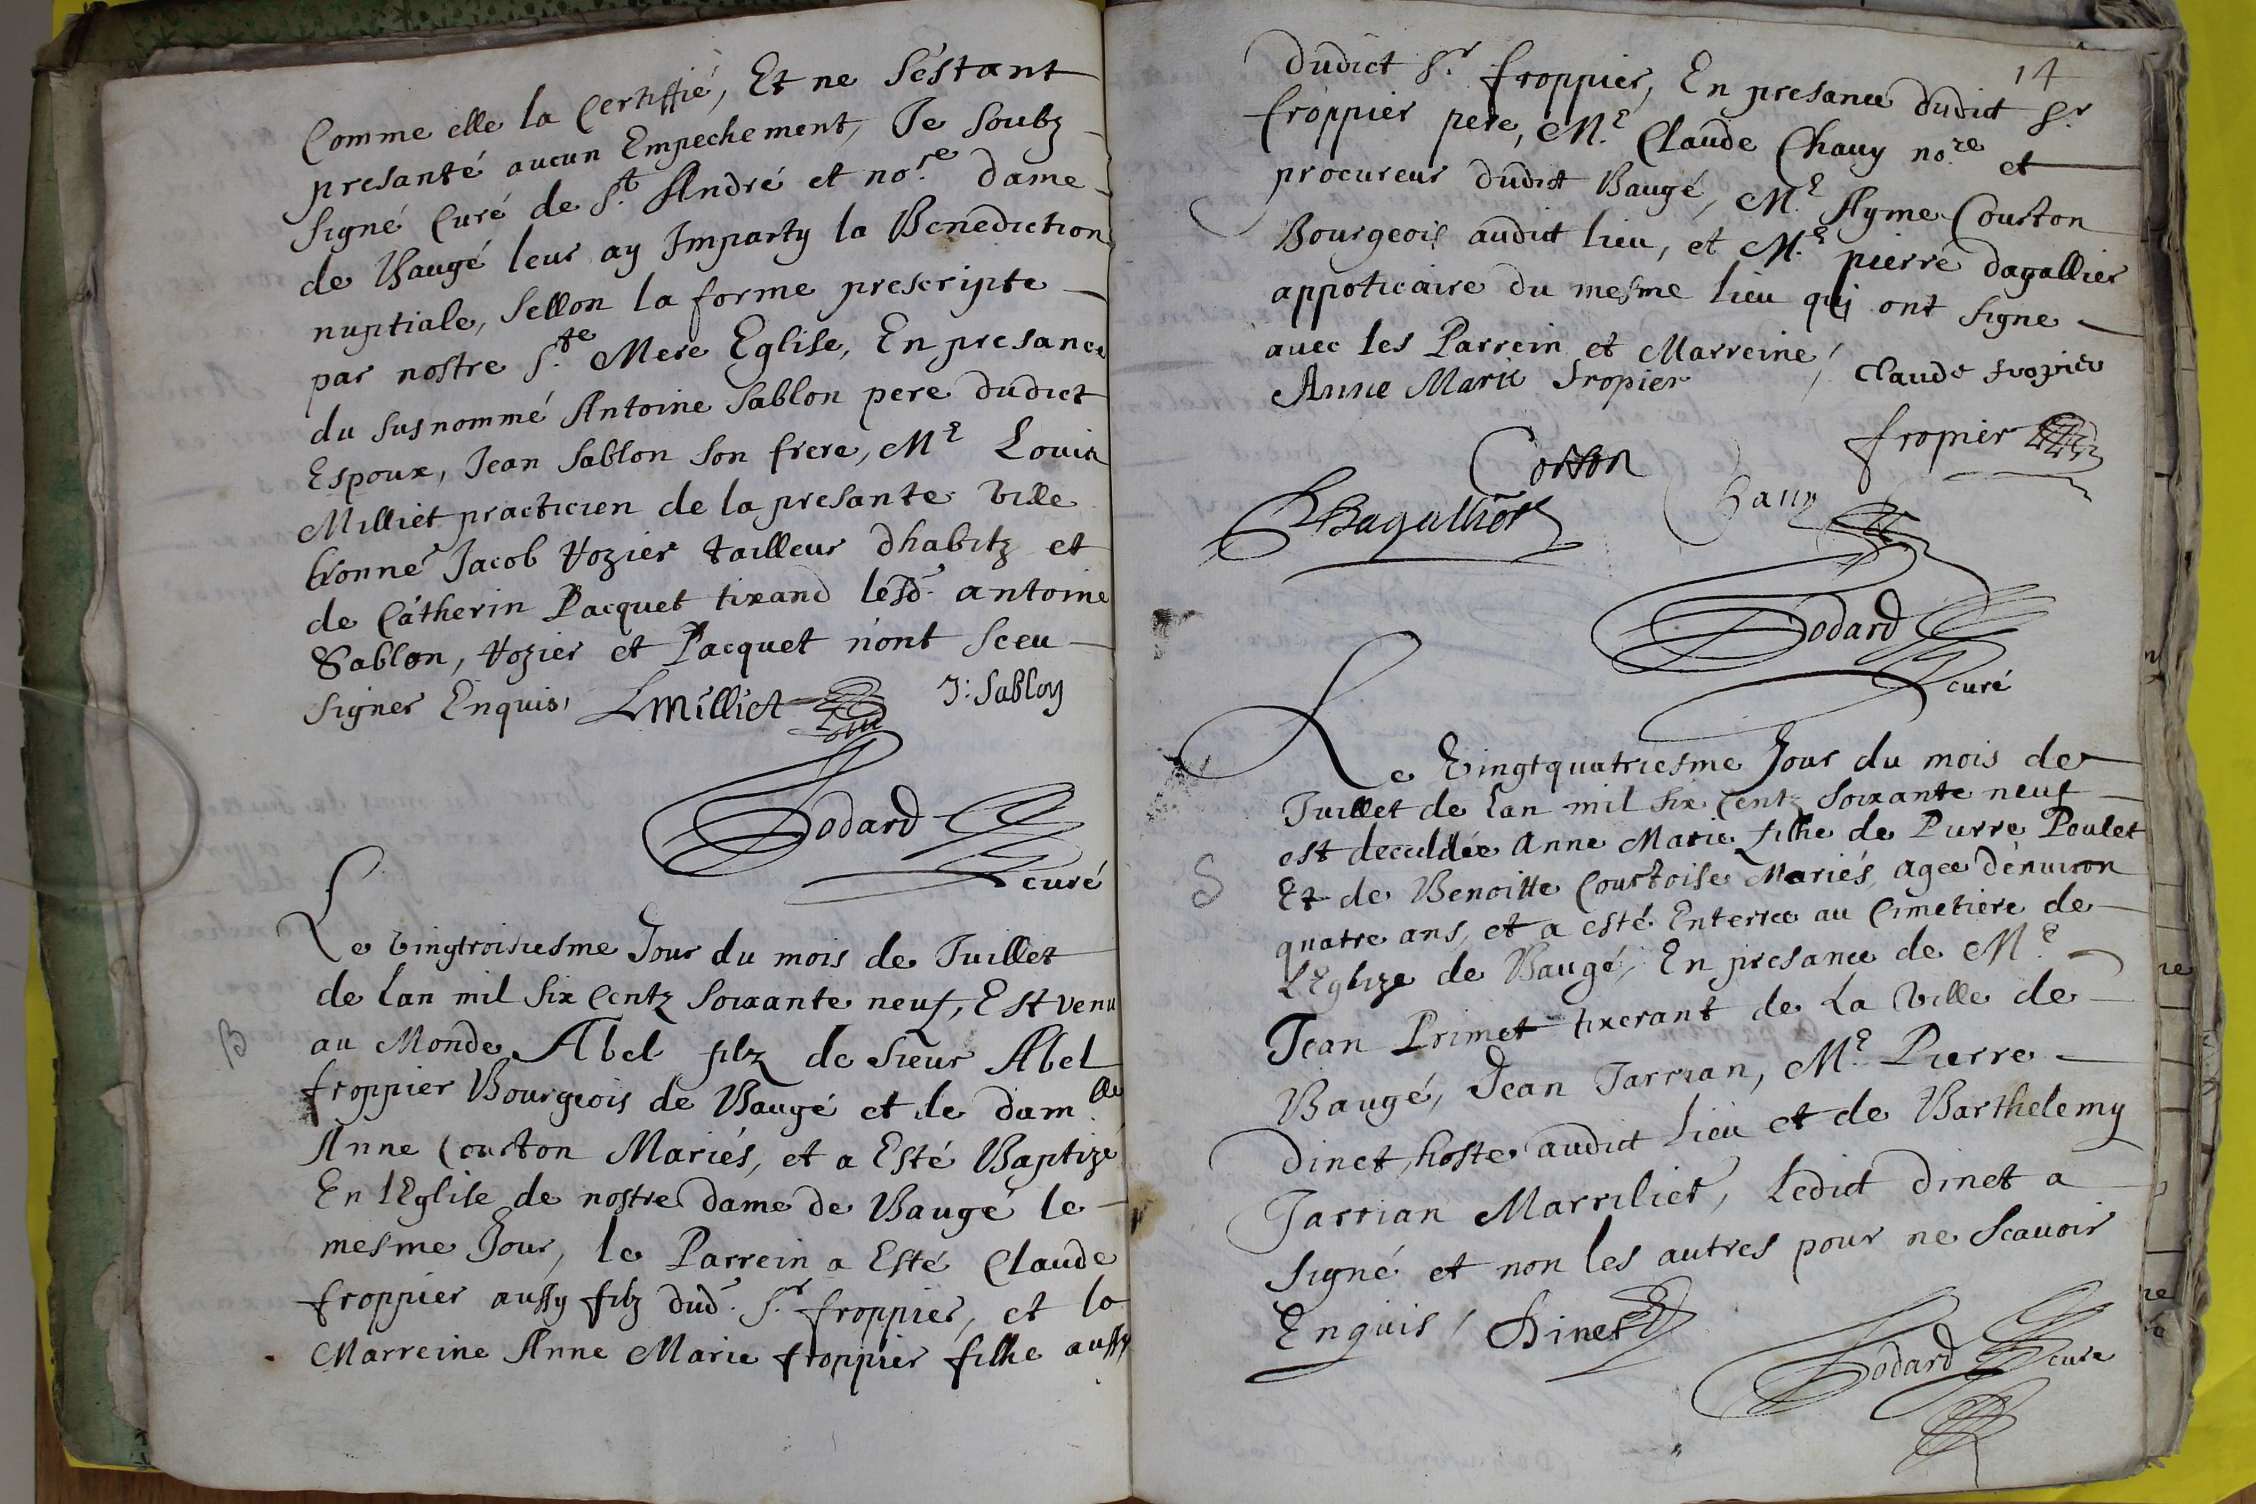 Comme elle la Certiffié, Et ne S'estant
presanté aucun Empechement, Je Soubz
signé Curé de S.t André et no.re dame
de Baugé leur ay Imparty la Benediction
nuptiale, Sellon la forme prescripte
par nostre S.te Mere Eglise, En presance
du susnommé Antoine Sablon pere dudict
Espoux, Jean Sablon son frere, M.e Louis
Milliet practicien de la presante Ville
honne Jacob Vozier tailleur dhabitz et
de Catherin Pacquet tixand lesd. antoine
Sablon, Vozier et Pacquet n'ont sceu
signer Enquis, LMilliet J: Sablon
Bodard
curé
Le Vingtroisiesme Jour du mois de Juillet
B
de lan mil Six Centz Soixante neuf, Est venu
au Monde Abel filz de Sieur Abel
froppier Bourgeois de Baugé et de dam.lle
Anne Courton Mariés, et a Esté Baptizé
En l'Eglise de nostre dame de Baugé le
mesme Jour, le Parrein a Esté Claude
froppier aussy filz dud. S.r froppier, et la
Marreine Anne Marie froppier filhe aussy
14
dudict S.r froppier, En presance dudict S.r
froppier pere, M.e Claude Chauy no.re et
procureur dudict Baugé, M.e Ayme Courton
Bourgeois audict lieu, et M.e pierre dagallier
appoticaire du mesme lieu qui ont signe
auec les Parrein et Marreine,
Anne Marie fropier Claude fropier
fropier
Corton
Chauy
Dagallier
Bodard
curé
Le Vingtquatriesme Jour du mois de
Juillet de lan mil six Centz soixante neuf
est deceddée Anne Marie filhe de Pierre Poulet
S
Et de Benoitte Courtoise Mariés, agee d'enuiron
quatre ans, et a esté Enterree au Cimetiere de
L'Eglize de Baugé, En presance de M.e
Jean Primet tixerant de La Ville de
Baugé, Jean Tarrian, M.e Pierre
dinet, hoste audict lieu et de Barthelemy
Tarrian Marrilier, Ledict dinet a
signé et non les autres pour ne Scauoir
Enquis, Dinet
Bodard
cure